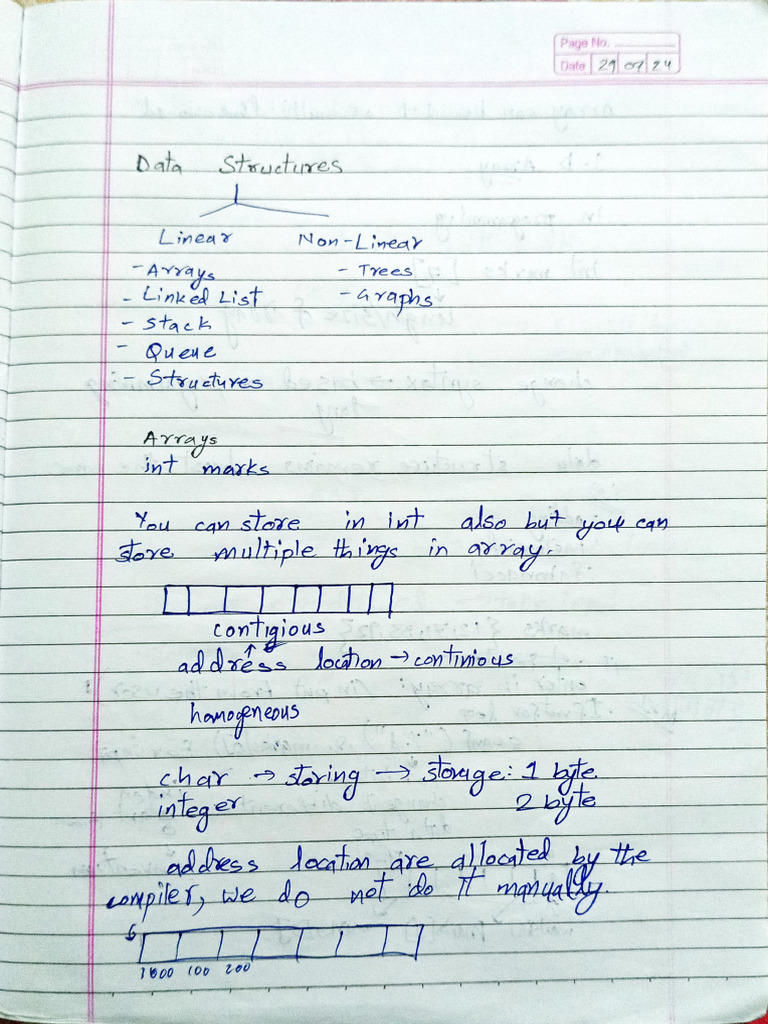 Page No.
Date 29 07 24
Data Structures
Linear Non-Linear
- Arrays - Trees
- Linked List - Graphs
- Stack
- Queue
- Structures
Arrays
int marks
You can store in int also but you can
store multiple things in array.
contigious
address location → continious
homogeneous
char → storing → storage: 1 byte
integer 2 byte
address location are allocated by the
compiler, we do not do it manually.
100 200